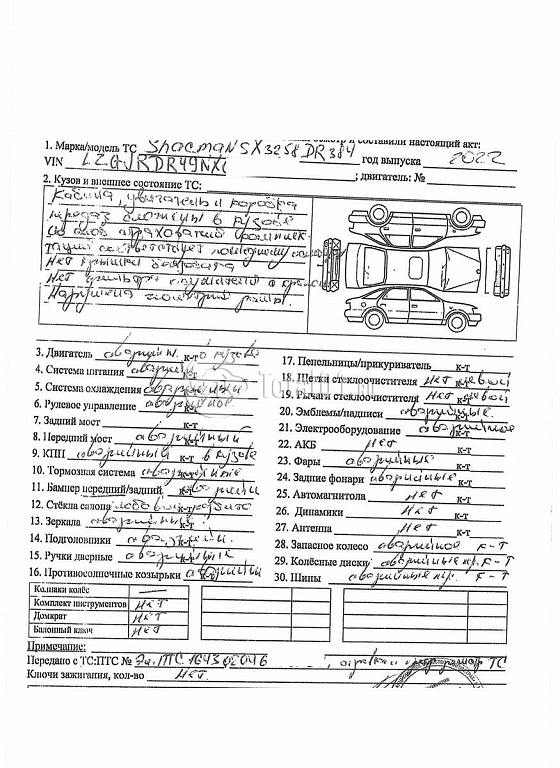 1. Марка/модель ТС Shacman SX3258DR384
VIN LZGJRDR49NX год выпуска 2022
; двигатель: №
2. Кузов и внешнее состояние ТС:
Кабина, двигатель и коробка
передач вложены в кузове
Нет крышки
Нет
Нарушена геометрия рамы
3. Двигатель аварийн. к-т в кузове
4. Система питания аварийн к-т
5. Система охлаждения аварийный к-т
6. Рулевое управление аварийное
7. Задний мост к-т
8. Передний мост аварийный к-т
9. КПП аварийный к-т в кузове
10. Тормозная система аварийная к-т
11. Бампер передний/задний аварийн к-т
12. Стёкла салона лобовое к-т разбито
13. Зеркала аварийный к-т
14. Подголовники аварийн. к-т
15. Ручки дверные аварийные к-т
16. Противосолнечные козырьки аварийны к-т
17. Пепельницы/прикуриватель к-т
18. Щетки стеклоочистителя нет левой
19. Рычаги стеклоочистителя нет левой
20. Эмблемы/надписи аварийные
21. Электрооборудование аварийное
22. АКБ нет
23. Фары аварийные
24. Задние фонари аварийные
25. Автомагнитола нет
26. Динамики нет
27. Антенна нет
28. Запасное колесо аварийное к-т
29. Колёсные диски аварийные пр. к-т
30. Шины аварийные пр. к-т
Колпаки колёс —
Комплект инструментов нет
Домкрат нет
Балонный ключ нет
Примечание:
Передано с ТС:ПТС № Эл.ПТС 164302046 ТС
Ключи зажигания, кол-во нет